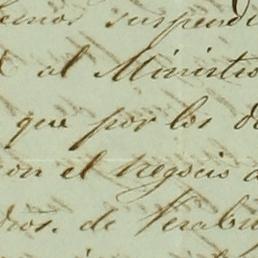 emos suspendi
al Ministro
que por los d
on el negocio
dros. de Verabu